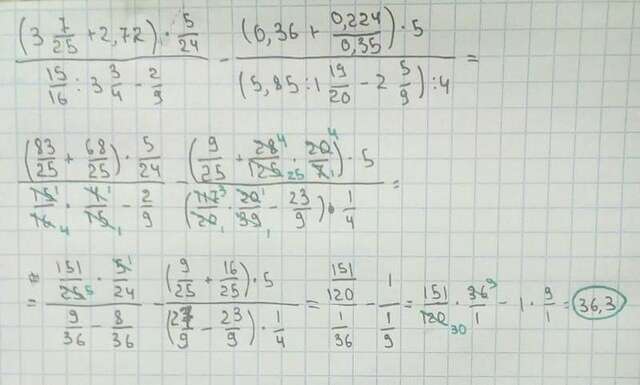 (3 7/25 + 2,72) · 5/24 / (15/16 : 3 3/4 - 2/9) - (0,36 + 0,224/0,35) · 5 / ((5,85 : 1 19/20 - 2 5/9) : 4) =
(83/25 + 68/25) · 5/24 / (15/16 · 4/15 - 2/9) - (9/25 + 28/125 · 20/7) · 5 / ((117/20 · 20/39 - 23/9) · 1/4) =
= 151/25 · 5/24 / (9/36 - 8/36) - (9/25 + 16/25) · 5 / ((27/9 - 23/9) · 1/4) = 151/120 / 1/36 - 1 / 1/9 = 151/120 · 36/1 - 1 · 9/1 = 36,3